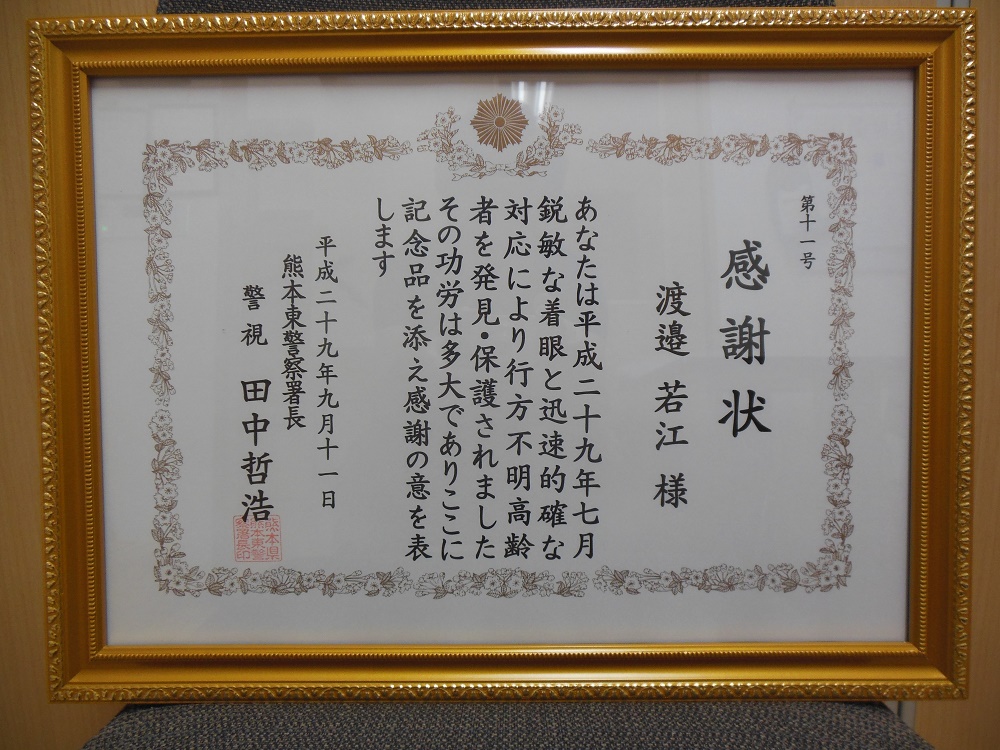 第十一号
感謝状
渡邉 若江 様
あなたは平成二十九年七月
鋭敏な着眼と迅速的確な
対応により行方不明高齢
者を発見・保護されました
その功労は多大でありここに
記念品を添え感謝の意を表
します
平成二十九年九月十一日
熊本東警察署長
警視 田中哲浩
熊本県
熊本東警
察署長印